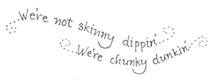 We're not skinny dippin'
We're chunky dunkin'